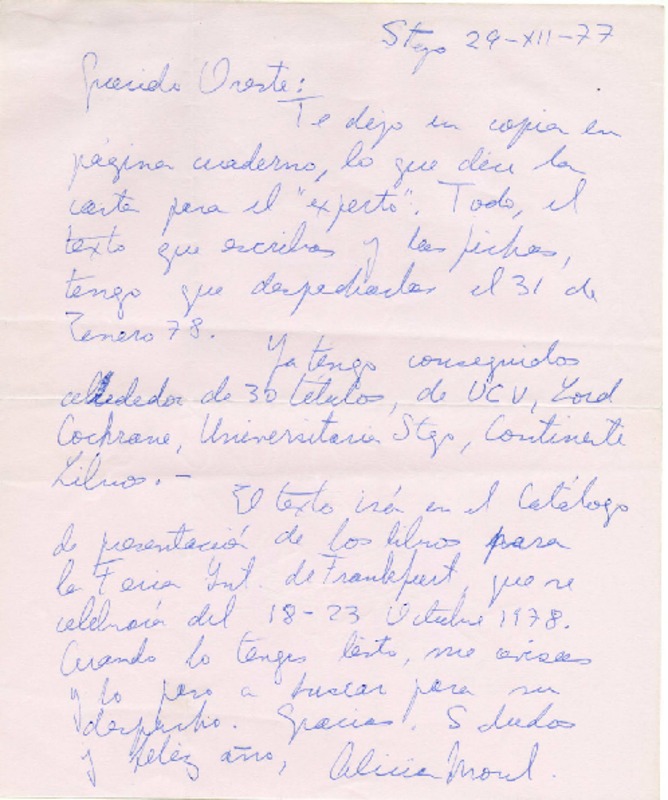 Stgo 29-XII-77
Querido Oreste:
Te dejo en copia en
página cuaderno, lo que dice la
carta para el "experto". Todo, el
texto que escribas y las fichas,
tengo que despacharlas el 31 de
Enero 78.
Ya tengo conseguidos
alrededor de 30 títulos, de UCV, Lord
Cochrane, Universitaria Stgo, Continente
Libros.-
El texto irá en el Catálogo
de presentación de los libros para
la Feria Int. de Frankfurt, que se
celebrará del 18-23 Octubre 1978.
Cuando lo tengas listo, me avisas
y lo paso a buscar para su
despacho. Gracias. Saludos
y feliz año, Alicia Morel.